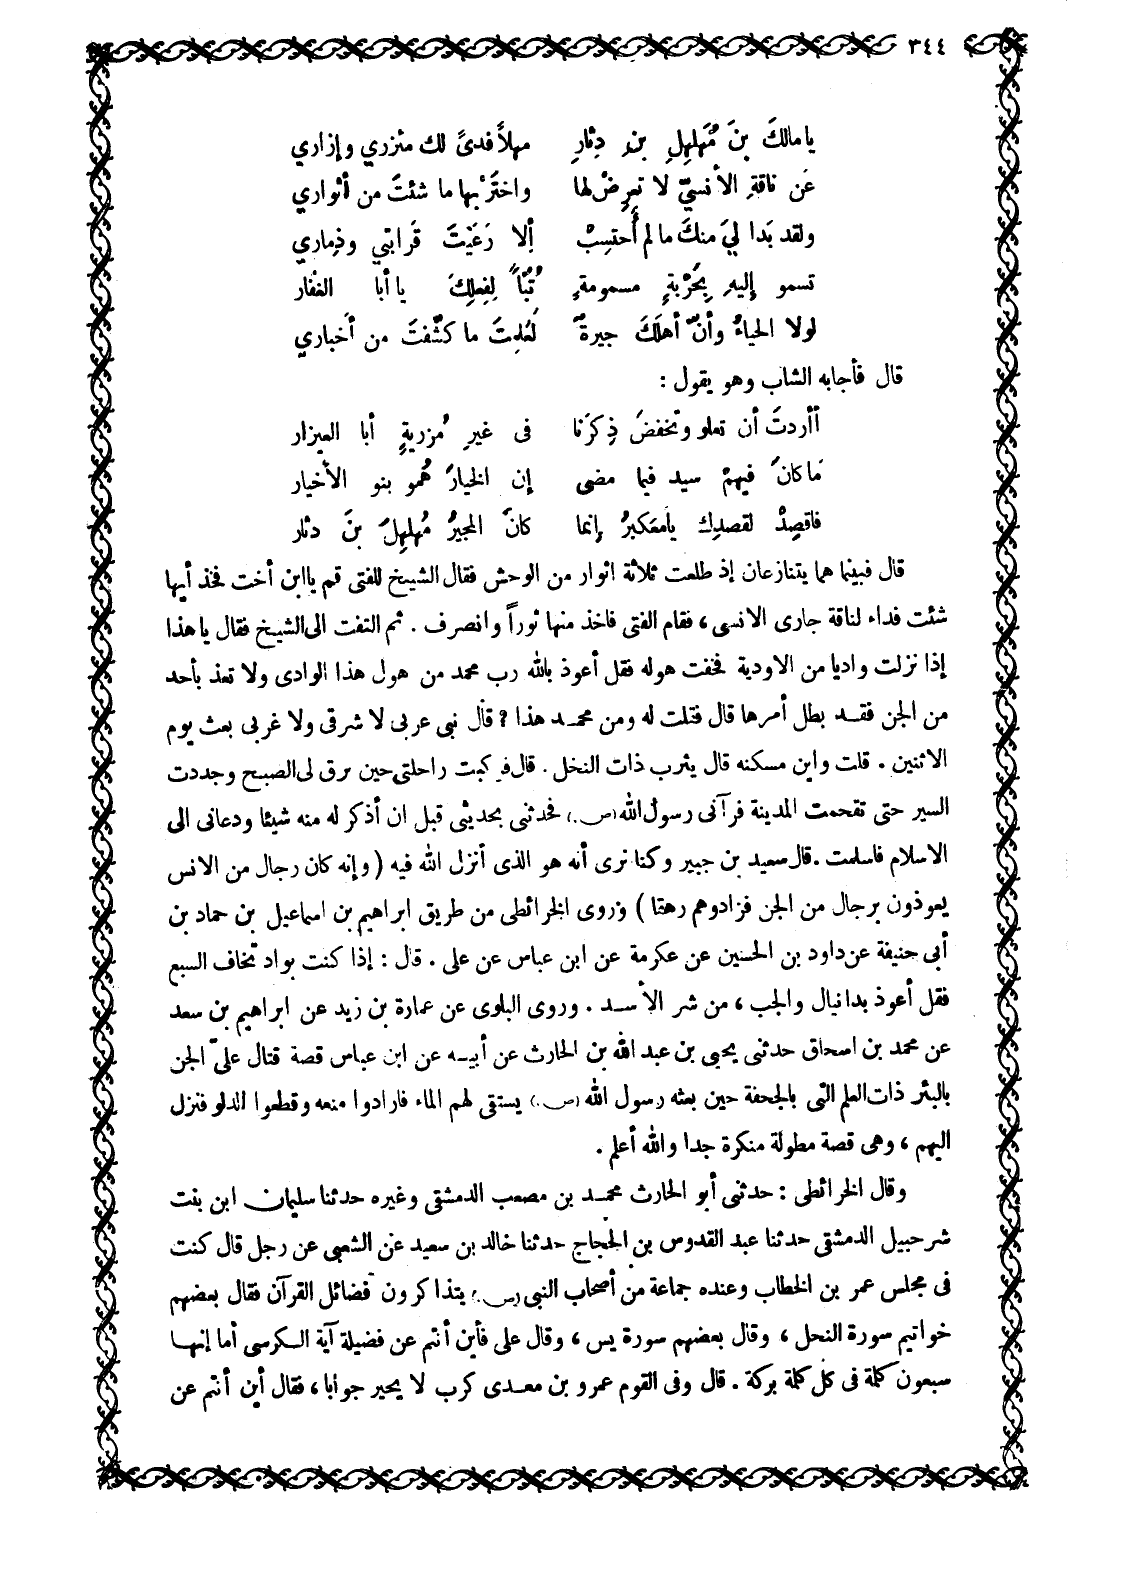 ٣٤٤
يا مالكَ بنَ مُهَلهِلِ بنِ دِثارِ مهلاً فدىً لك مئزري وإزاري
عَن ناقةِ الأنسيّ لا تعرِضْ لها واخترْ بها ما شئتَ من أثواري
ولقد بَدا ليَ منكَ ما لم أُحتسِبْ ألا رَعَيْتَ قَرابتي وذِماري
تسمو إليهِ بِحَرْبةٍ مسمومةٍ تُبّاً لِفعلِكَ يا أبا الغفار
لولا الحياءُ وأنّ أهلَكَ جيرةٌ لَعَلِمتَ ما كشّفتَ من أخباري
قال فأجابه الشاب وهو يقول :
أأردتَ أن تعلو وتخفضَ ذِكرَنا فى غيرِ مُزريةٍ أبا العيزار
مَا كانَ فيهمْ سيد فيما مضى إن الخيارَ هُمو بنو الأخيار
فاقصِدْ لقصدِك يا مَعكبرُ إنما كانَ المجيرُ مُهلهِلَ بنَ دثار
قال فبينما هما يتنازعان إذ طلعت ثلاثة اثوار من الوحش فقال الشيخ للفتى قم يا ابن أخت فخذ أيها
شئت فداء لناقة جارى الانسى ، فقام الفتى فاخذ منها ثوراً وانصرف . ثم التفت الى الشيخ فقال يا هذا
إذا نزلت واديا من الاودية فخفت هوله فقل أعوذ بالله رب محمد من هول هذا الوادى ولا تعذ بأحد
من الجن فقد بطل أمرها قال فقلت له ومن محمد هذا ؟ قال نبى عربى لا شرقى ولا غربى بعث يوم
الاثنين . قلت واين مسكنه قال يثرب ذات النخل . قال فركبت راحلتى حين برق لى الصبح وجددت
السير حتى تقحمت المدينة فرآنى رسول الله (ص.) فحدثنى بحديثى قبل ان أذكر له منه شيئا ودعانى الى
الاسلام فاسلمت . قال سعيد بن جبير وكنا نرى أنه هو الذى أنزل الله فيه ( وإنه كان رجال من الانس
يعوذون برجال من الجن فزادوهم رهقا ) وروى الخرائطى من طريق ابراهيم بن اسماعيل بن حماد بن
أبى حنيفة عن داود بن الحسين عن عكرمة عن ابن عباس عن على . قال : إذا كنت بواد تخاف السبع
فقل أعوذ بدانيال والجب ، من شر الأسد . وروى البلوى عن عمارة بن زيد عن ابراهيم بن سعد
عن محمد بن اسحاق حدثنى يحيى بن عبد الله بن الحارث عن أبيه عن ابن عباس قصة قتال علىّ الجن
بالبئر ذات العلم التى بالجحفة حين بعثه رسول الله (ص.) يستقى لهم الماء فارادوا منعه وقطعوا الدلو فنزل
اليهم ، وهى قصة مطولة منكرة جدا والله أعلم .
وقال الخرائطى : حدثنى أبو الحارث محمد بن مصعب الدمشقى وغيره حدثنا سليمان ابن بنت
شرحبيل الدمشقى حدثنا عبد القدوس بن الحجاج حدثنا خالد بن سعيد عن الشعبى عن رجل قال كنت
فى مجلس عمر بن الخطاب وعنده جماعة من أصحاب النبى (ص.) يتذاكرون فضائل القرآن فقال بعضهم
خواتيم سورة النحل ، وقال بعضهم سورة يس ، وقال على فأين أنتم عن فضيلة آية الكرسى أما إنها
سبعون كلمة فى كل كلمة بركة . قال وفى القوم عمرو بن معدى كرب لا يحير جوابا ، فقال أين أنتم عن